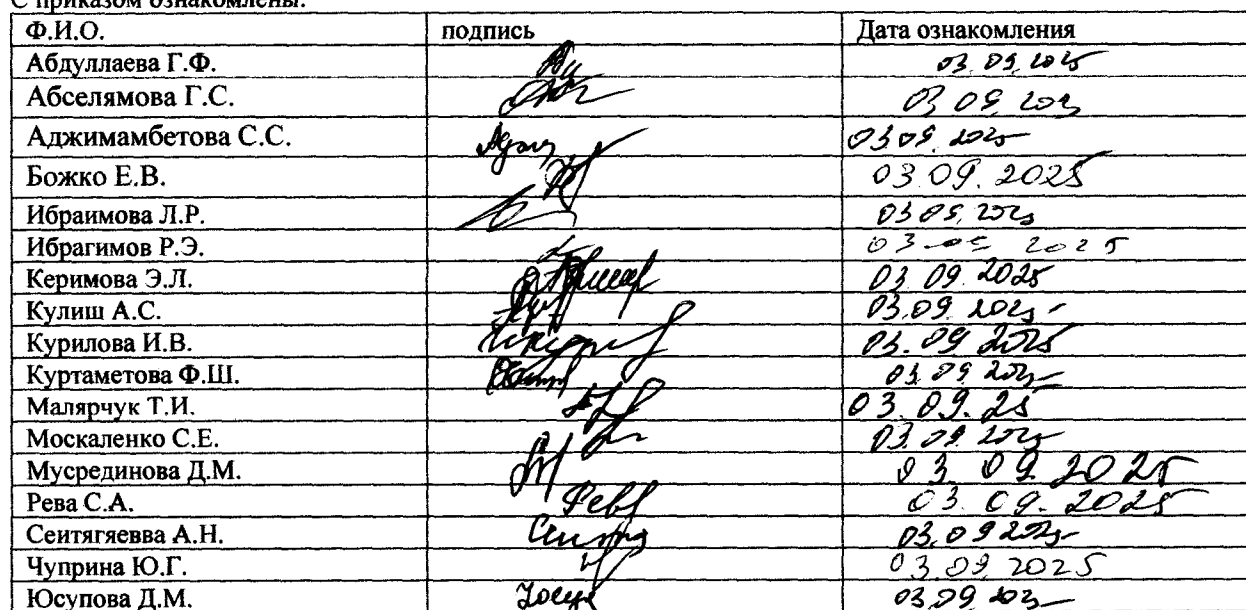 С приказом ознакомлены:
Ф.И.О. подпись Дата ознакомления
Абдуллаева Г.Ф. 03.09.2025
Абселямова Г.С. 03 09 2025
Аджимамбетова С.С. 03 09. 2025
Божко Е.В. 03.09. 2025
Ибраимова Л.Р. 03 09. 2025
Ибрагимов Р.Э. 03 09 2025
Керимова Э.Л. 03 09. 2025
Кулиш А.С. 03.09. 2025
Курилова И.В. 03.09 2025
Куртаметова Ф.Ш. 03 09 2025
Малярчук Т.И. 03. 09. 25
Москаленко С.Е. 03.09. 2025
Мусрединова Д.М. 03. 09. 2025
Рева С.А. Рев 03. 09. 2025
Сеитягяевва А.Н. 03.09 2025
Чуприна Ю.Г. 03.09. 2025
Юсупова Д.М. Юсуп 03.09 2025